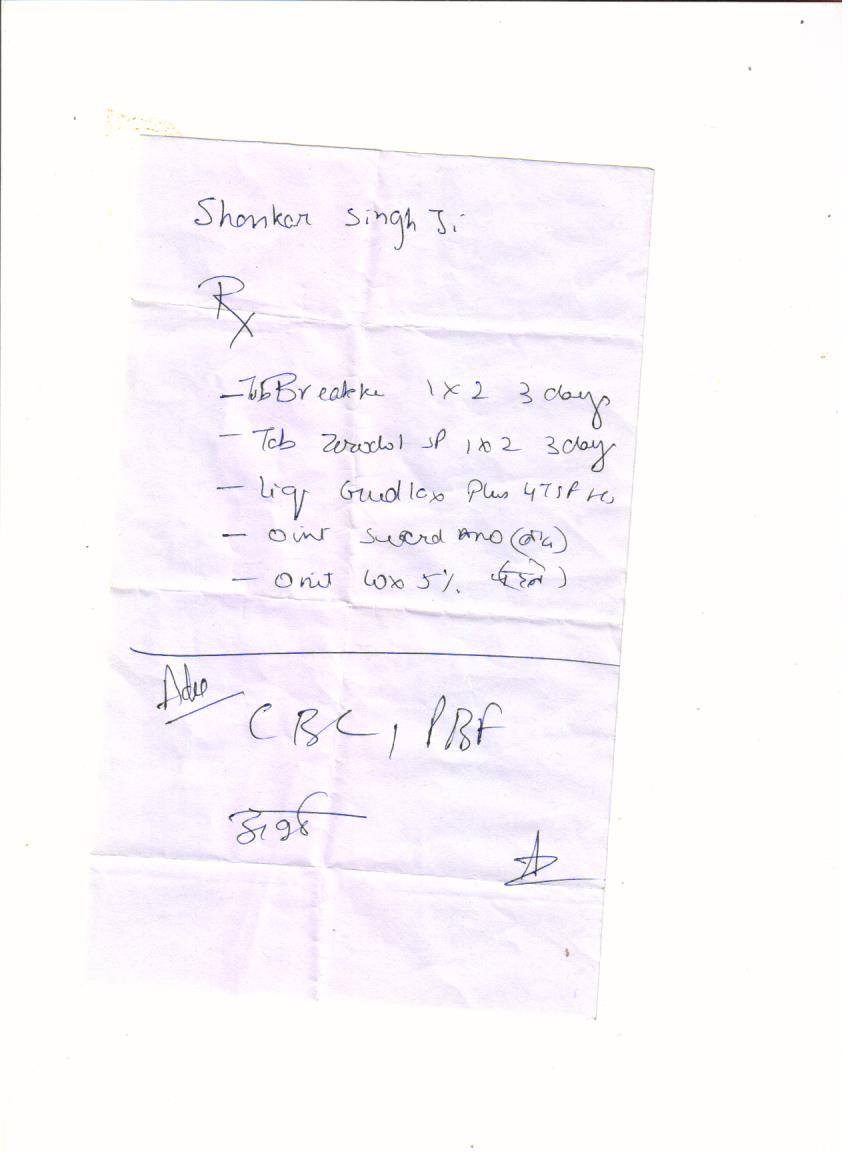 Shankar Singh Ji
Rx
– Tab Breakke 1 x 2 3 days
– Tab Zerodol SP 1 x 2 3 day
– Liq Gudlax Plus 4TSF HS
– Oint Sucral ANO
– Oint Lox 5%
Adv
CBC, PBF